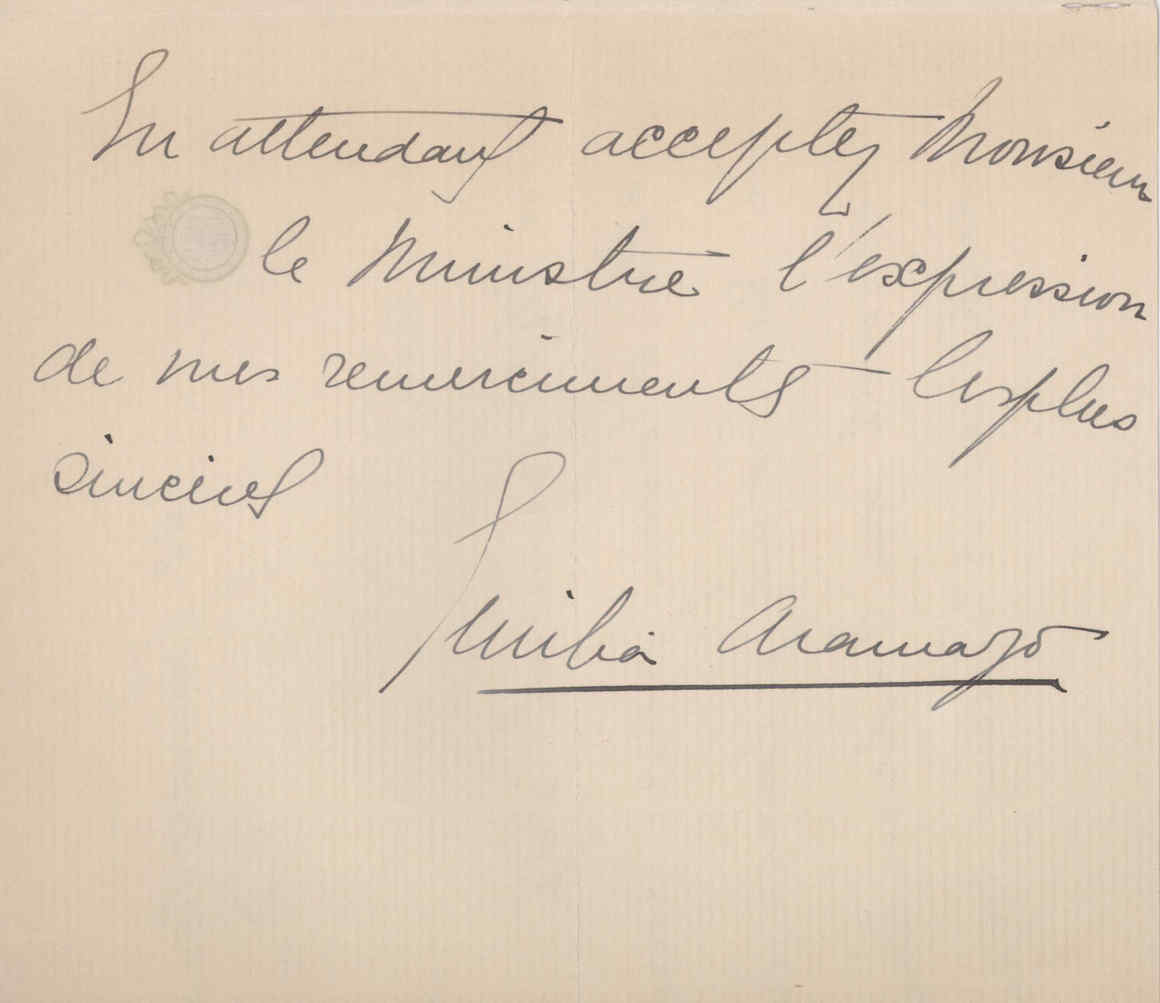 En attendant acceptez Monsieur
le Ministre l'expression
de mes remerciments les plus
sincères
Emilia Aramayo